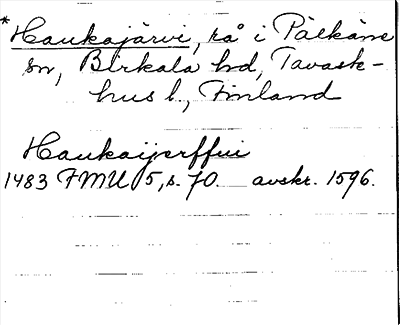 *Haukajärvi, rå i Pälkäne
sn, Birkala hd, Tavast-
hus l., Finland
Haukaijerffui
1483 FMU 5, s. 70. avskr. 1596.